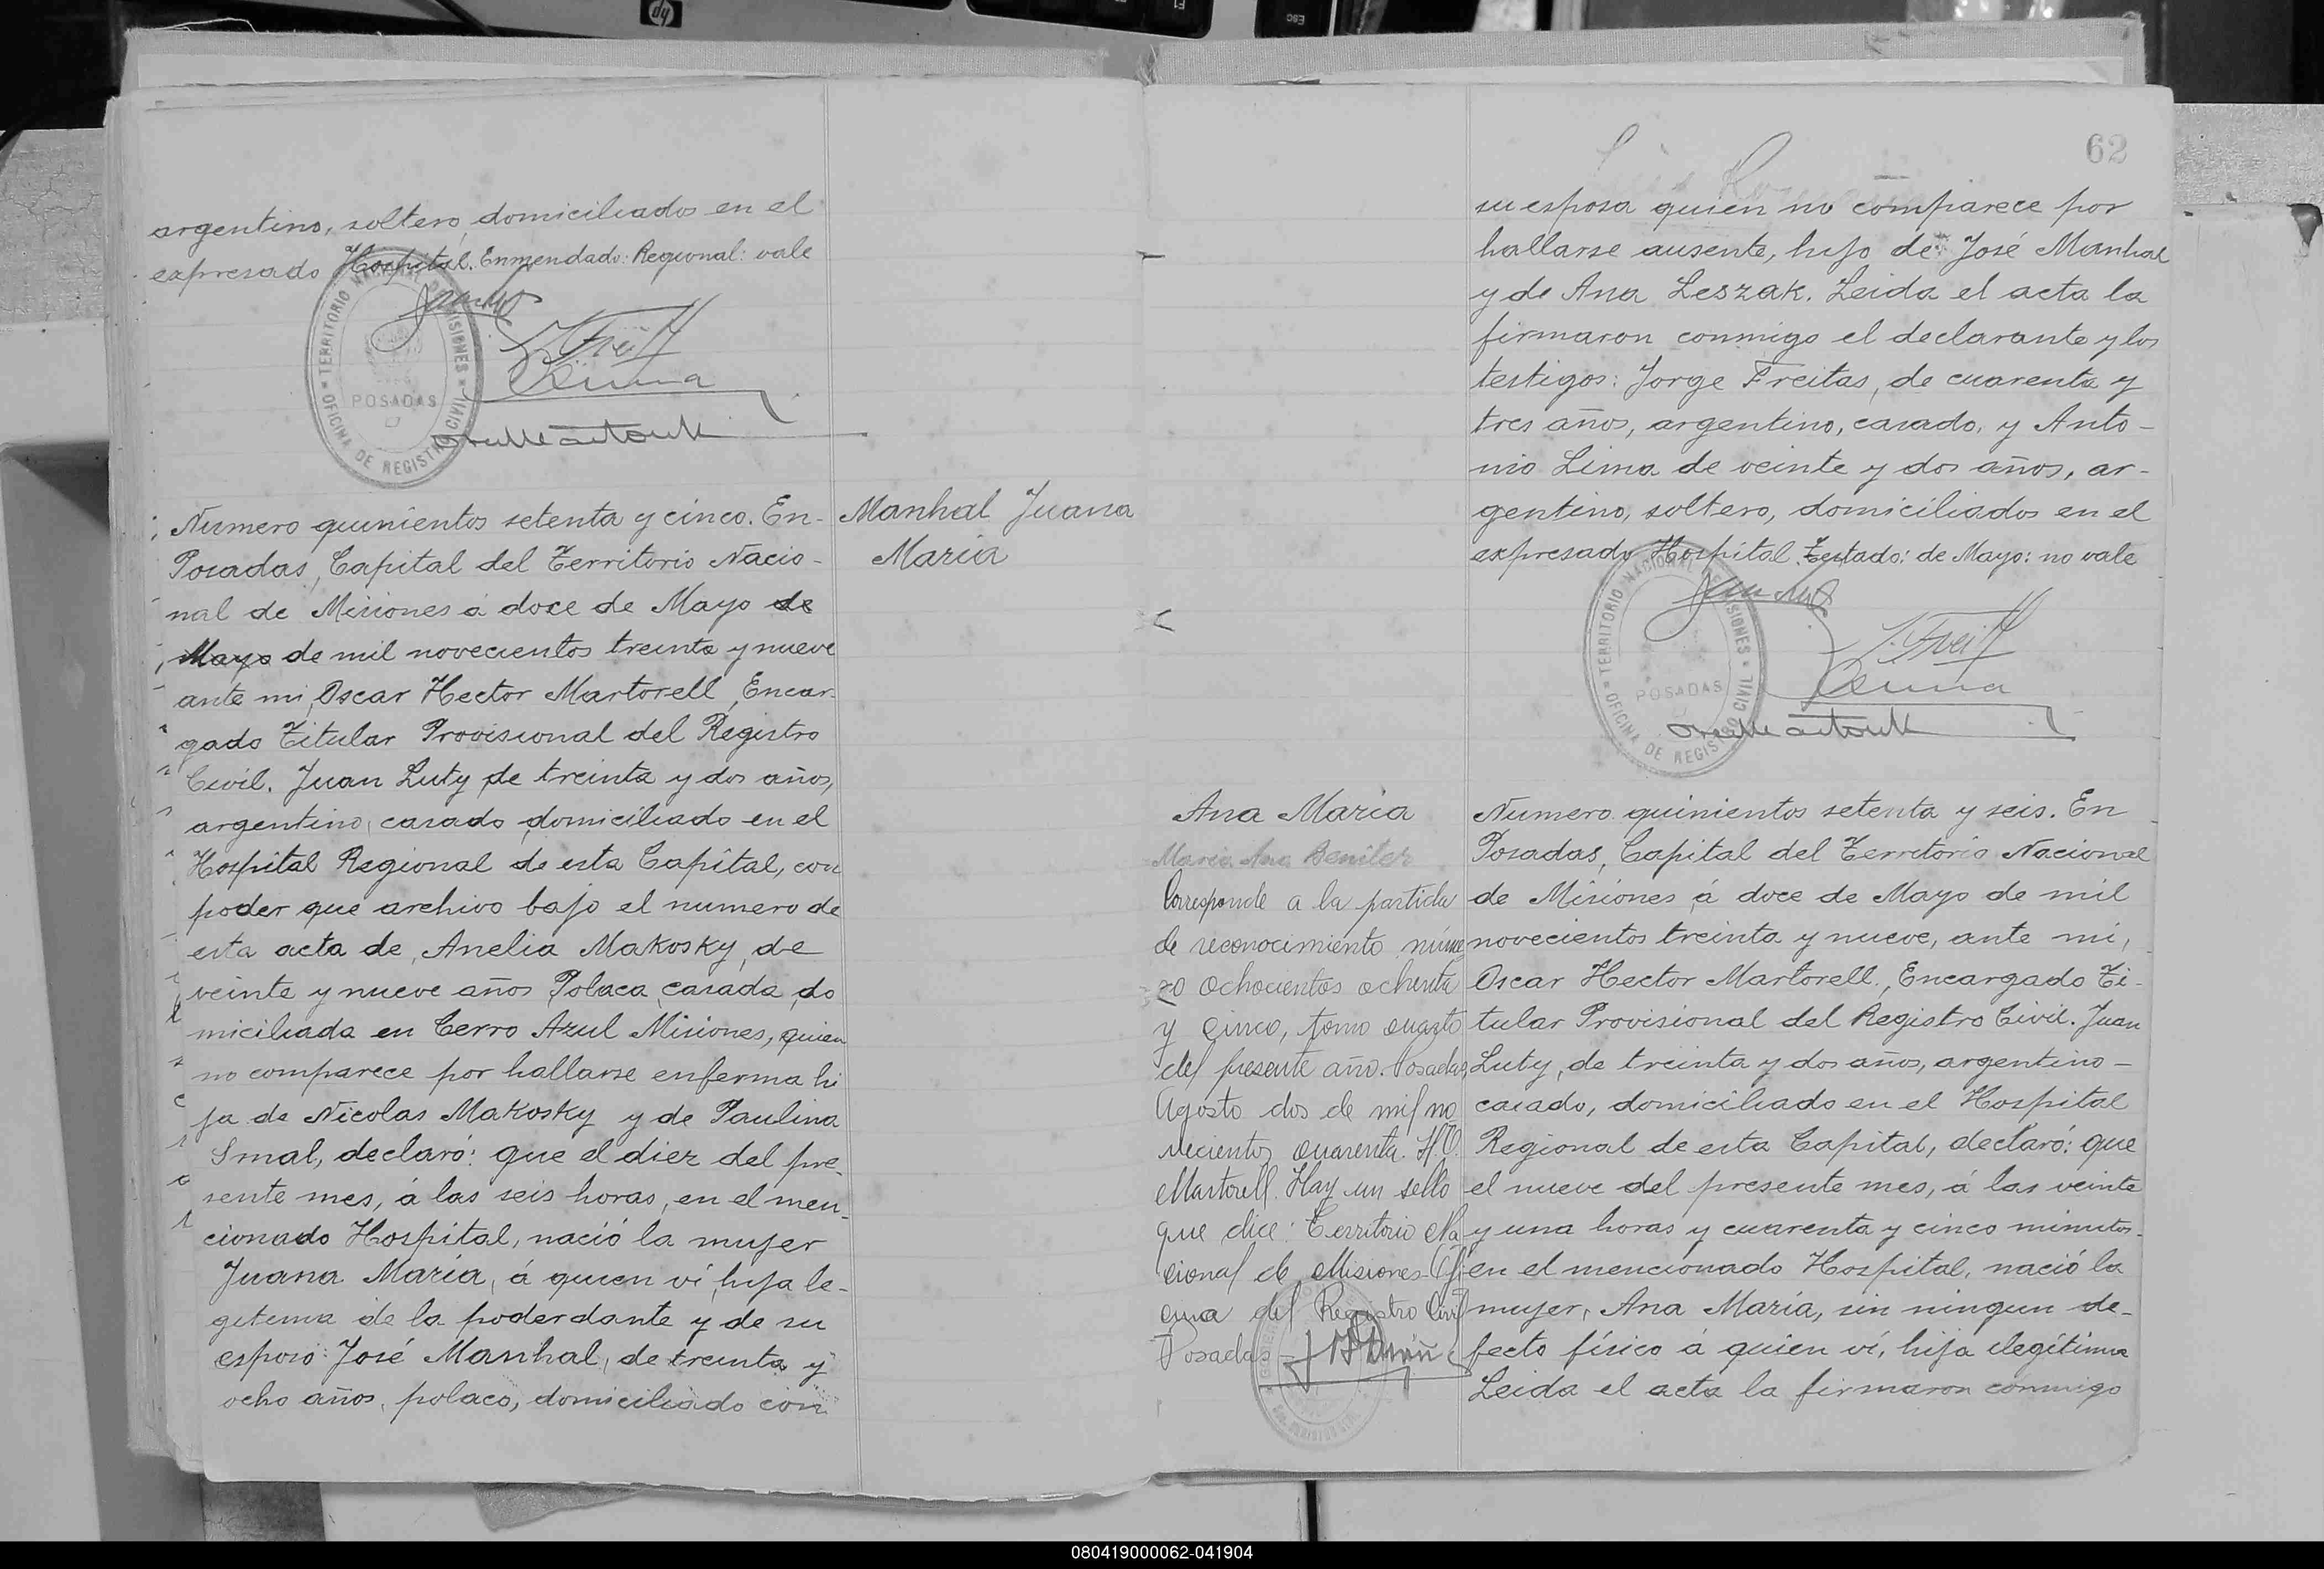 argentino, soltero, domiciliados en el
expresado Hospital. Enmendado: Regional: vale
TERRITORIO NACIONAL DE MISIONES
POSADAS
OFICINA DE REGISTRO CIVIL
Numero quinientos setenta y cinco. En
Posadas, Capital del Territorio Nacio-
nal de Misiones á doce de Mayo de
Mayo de mil novecientos treinta y nueve
ante mi, Oscar Hector Martorell, Encar-
gado Titular Provisional del Registro
Civil. Juan Luty, de treinta y dos años,
argentino, casado, domiciliado en el
Hospital Regional de esta Capital, con
poder que archivo bajo el numero de
esta acta de, Anelia Makosky, de
veinte y nueve años, Polaca, casada, do
miciliada en Cerro Azul Misiones, quien
no comparece por hallarse enferma hi
ja de Nicolas Makosky y de Paulina
Smal, declaró: que el diez del pre-
sente mes, á las seis horas, en el men-
cionado Hospital, nació la mujer
Juana María, á quien ví, hija le-
getima de la poderdante y de su
esposo: José Manhal, de treinta y
ocho años, polaco, domiciliado con
Manhal Juana
María
62
su esposa quien no comparece por
hallarse ausente, hijo de José Manhal
y de Ana Leszak. Leida el acta la
firmaron conmigo el declarante y los
testigos: Jorge Freitas, de cuarenta y
tres años, argentino, casado, y Anto-
nio Lima de veinte y dos años, ar-
gentino, soltero, domiciliados en el
expresado Hospital. Testado: de Mayo: no vale
TERRITORIO NACIONAL DE MISIONES
POSADAS
OFICINA DE REGISTRO CIVIL
Ana María
María Ana Benitez
Corresponde a la partida
de reconocimiento núme
ro ochocientos ochenta
y cinco, tomo cuarto
del presente año. Posadas,
Agosto dos de mil no
vecientos cuarenta. H.O.
Martorell. Hay un sello
que dice: Territorio Na
cional de Misiones-Ofi
cina del Registro Civil
Posadas
Numero quinientos setenta y seis. En
Posadas, Capital del Territorio Nacional
de Misiones, á doce de Mayo de mil
novecientos treinta y nueve, ante mi,
Oscar Hector Martorell, Encargado Ti-
tular Provisional del Registro Civil. Juan
Luty, de treinta y dos años, argentino-
casado, domiciliado en el Hospital
Regional de esta Capital, declaró: que
el nueve del presente mes, á las veinte
y una horas y cuarenta y cinco minutos-
en el mencionado Hospital, nació la
mujer, Ana María, sin ningun de-
fecto físico á quien ví, hija ilegítima
Leida el acta la firmaron conmigo
080419000062-041904